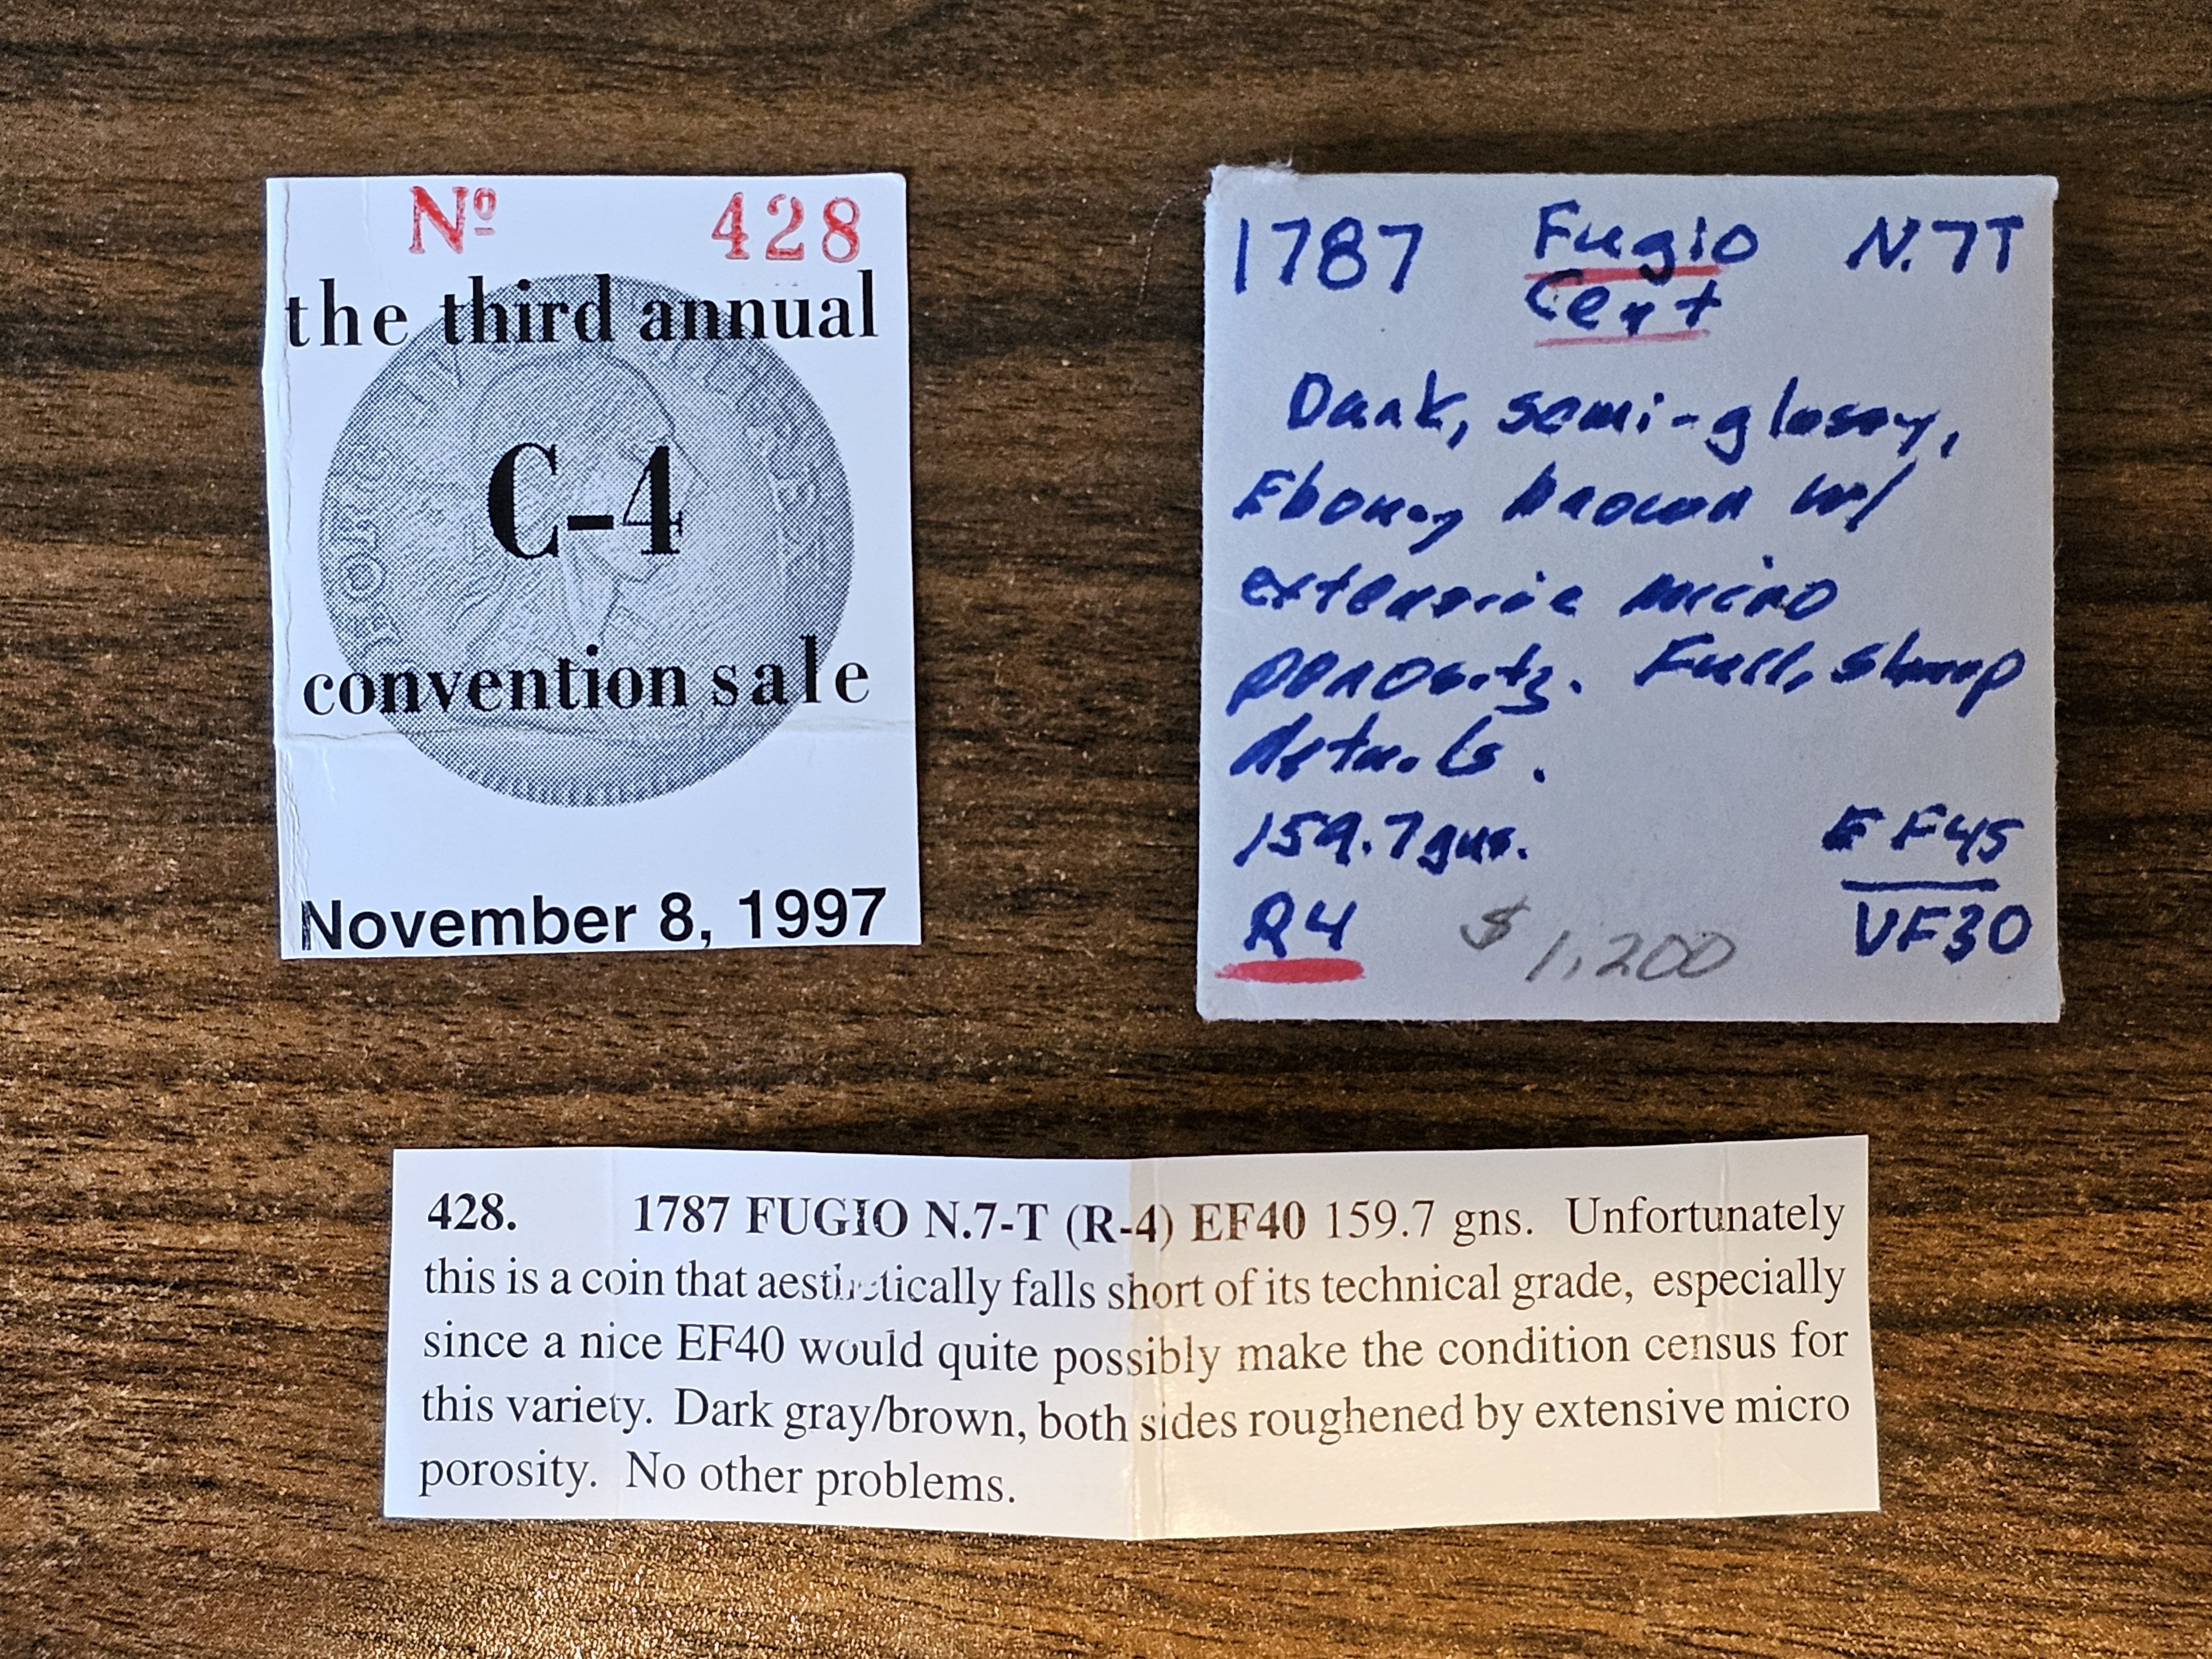 Nº 428
the third annual
C-4
convention sale
November 8, 1997
1787 Fugio N.7T
Cent
Dark, semi-glossy,
Ebony brown w/
extensive micro
porosity. Full, sharp
details.
159.7 gns. EF45
R4 $1,200 VF30
428. 1787 FUGIO N.7-T (R-4) EF40 159.7 gns. Unfortunately
this is a coin that aesthetically falls short of its technical grade, especially
since a nice EF40 would quite possibly make the condition census for
this variety. Dark gray/brown, both sides roughened by extensive micro
porosity. No other problems.